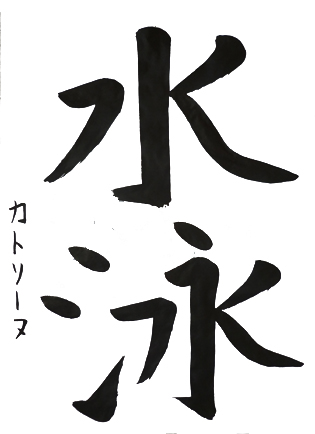 水泳
カトリーヌ